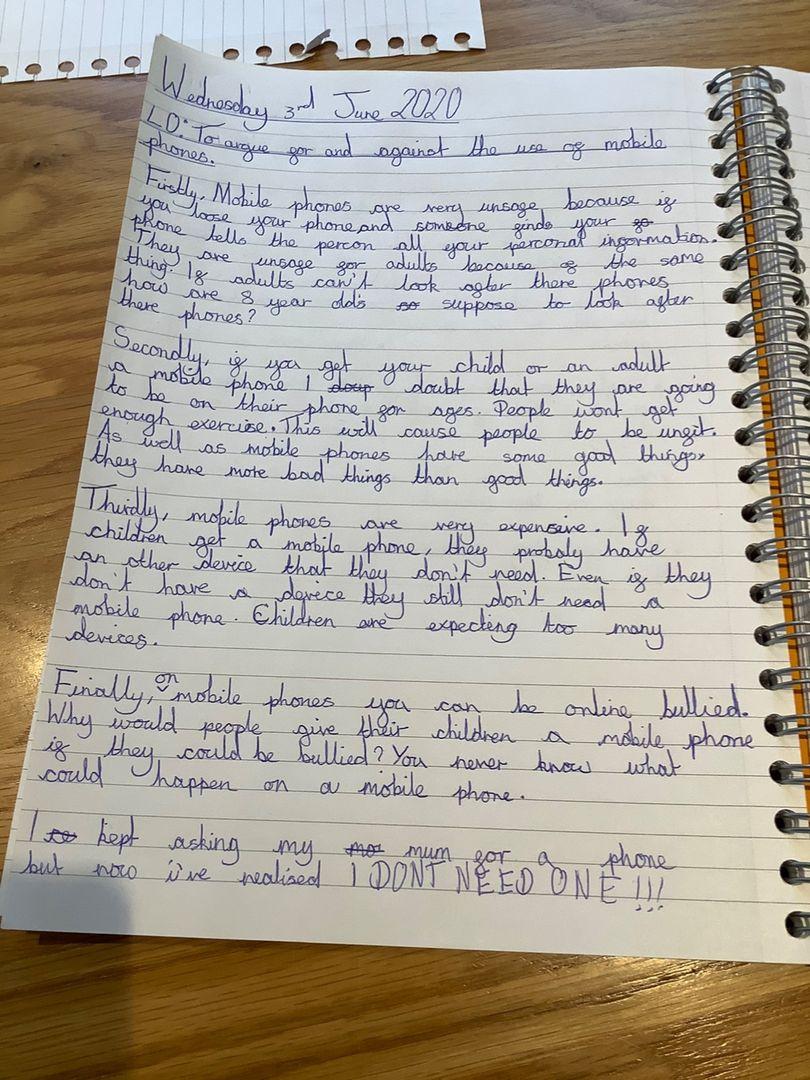 Wednesday 3rd June 2020
LO: To argue for and against the use of mobile
phones.
Firstly, Mobile phones are very unsafe because if
you loose your phone and someone finds your
phone tells the percon all your perconal information.
They are unsafe for adults because of the same
thing. If adults can't look after there phones
how are 8 year old's so suppose to look after
there phones?
Secondly, if you get your child or an adult
a mobile phone I doup doubt that they are going
to be on their phone for ages. People wont get
enough exercise. This will cause people to be unfit.
As well as mobile phones have some good things,
they have more bad things than good things.
Thirdly, mobile phones are very expensive. If
children get a mobile phone, they probaly have
an other device that they don't need. Even if they
don't have a device they still don't need a
mobile phone. Children are expecting too many
devices.
Finially, on mobile phones you can be online bullied.
Why would people give their children a mobile phone
if they could be bullied? You never know what
could happen on a mobile phone.
I to kept asking my mo mum for a phone
but now i've realised I DONT NEED ONE!!!